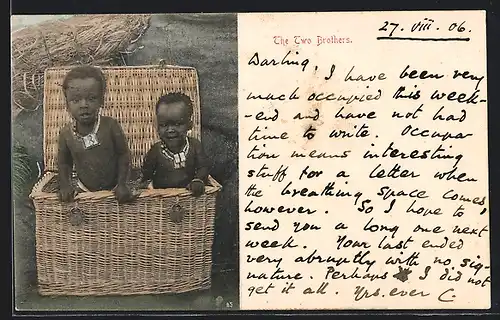 The Two Brothers.
27. viii. 06.
Darling,
I have been very
much occupied this week-
-end and have not had
time to write. Occupa-
tion means interesting
stuff for a letter when
the breathing space comes,
however. So I hope to
send you a long one next
week. Your last ended
very abruptly with no sig-
nature. Perhaps I did not
get it all. Yrs. ever C.